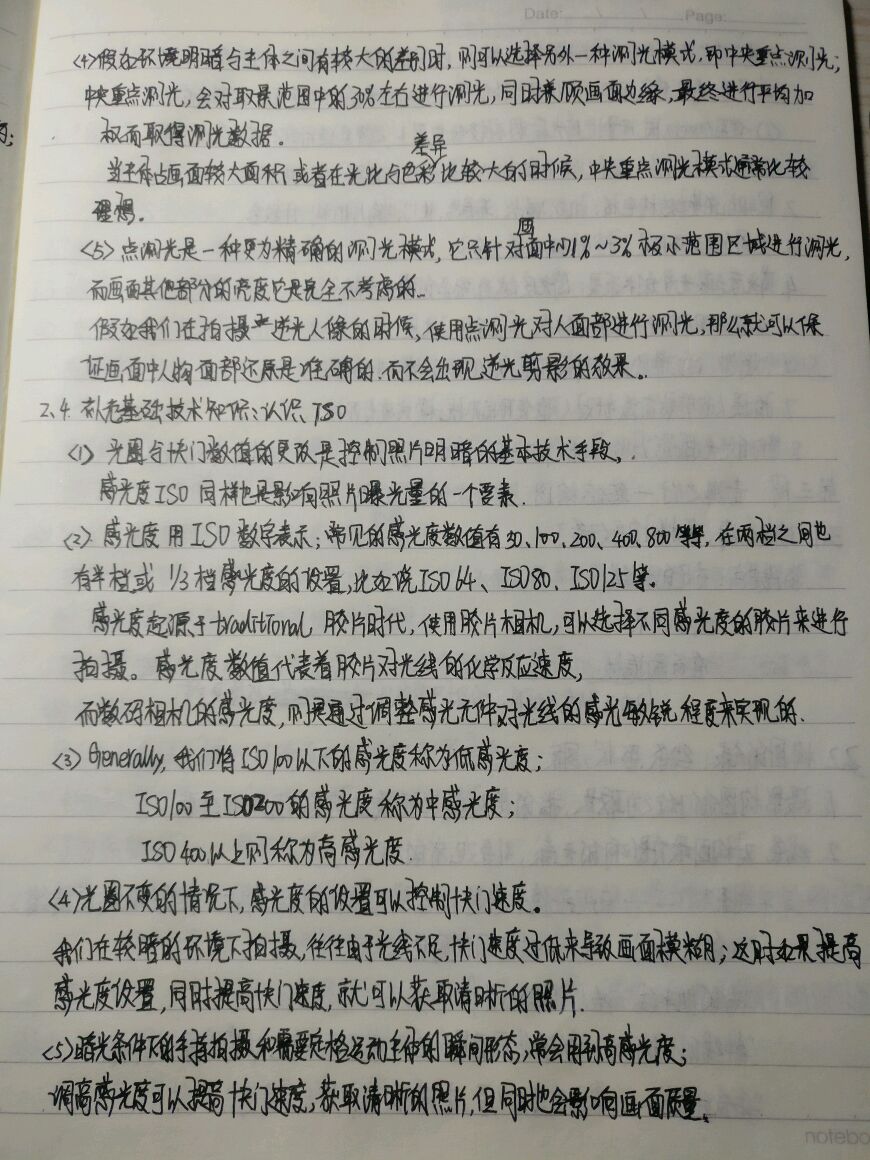 Date: / / Page:
<4>假如环境明暗与主体之间有较大的差别时，则可以选择另外一种测光模式，即中央重点测光；
中央重点测光，会对取景范围中的30%左右进行测光，同时兼顾画面边缘，最终进行平均加
权而取得测光数据。
差异
当主体占画面较大面积或者在光比与色彩比较大的时候，中央重点测光模式通常比较
理想。
画
<5>点测光是一种更为精确的测光模式，它只针对面中的1%~3%极小范围区域进行测光，
而画面其他部分的亮度它是完全不考虑的。
假如我们在拍摄逆光人像的时候，使用点测光对人面部进行测光，那么就可以保
证画面中人物面部还原是准确的，而不会出现逆光剪影的效果。
2.4. 补充基础技术知识：认识ISO
<1> 光圈与快门数值的更改是控制照片明暗的基本技术手段。
感光度ISO 同样也是影响照片曝光量的一个要素.
<2> 感光度用ISO数字表示；常见的感光度数值有50、100、200、400、800等等，在两档之间也
有半档或 1/3档感光度的设置，比如说ISO64、ISO80、ISO125等。
感光度起源于traditional 胶片时代，使用胶片相机，可以选择不同感光度的胶片来进行
拍摄。感光度数值代表着胶片对光线的化学反应速度，
而数码相机的感光度，则是通过调整感光元件对光线的感光敏锐程度来实现的.
<3> Generally，我们将ISO100以下的感光度称为低感光度；
ISO100至ISO200的感光度称为中感光度；
ISO400以上则称为高感光度.
<4>光圈不变的情况下，感光度的设置可以控制快门速度。
我们在较暗的环境下拍摄，往往由于光线不足，快门速度过低来导致画面模糊；这时如果提高
感光度设置，同时提高快门速度，就可以获取清晰的照片.
<5>暗光条件下的手持拍摄和需要定格运动主体的瞬间形态，常会用到高感光度；
调高感光度可以提高快门速度，获取清晰的照片，但同时也会影响画面质量。
notebo